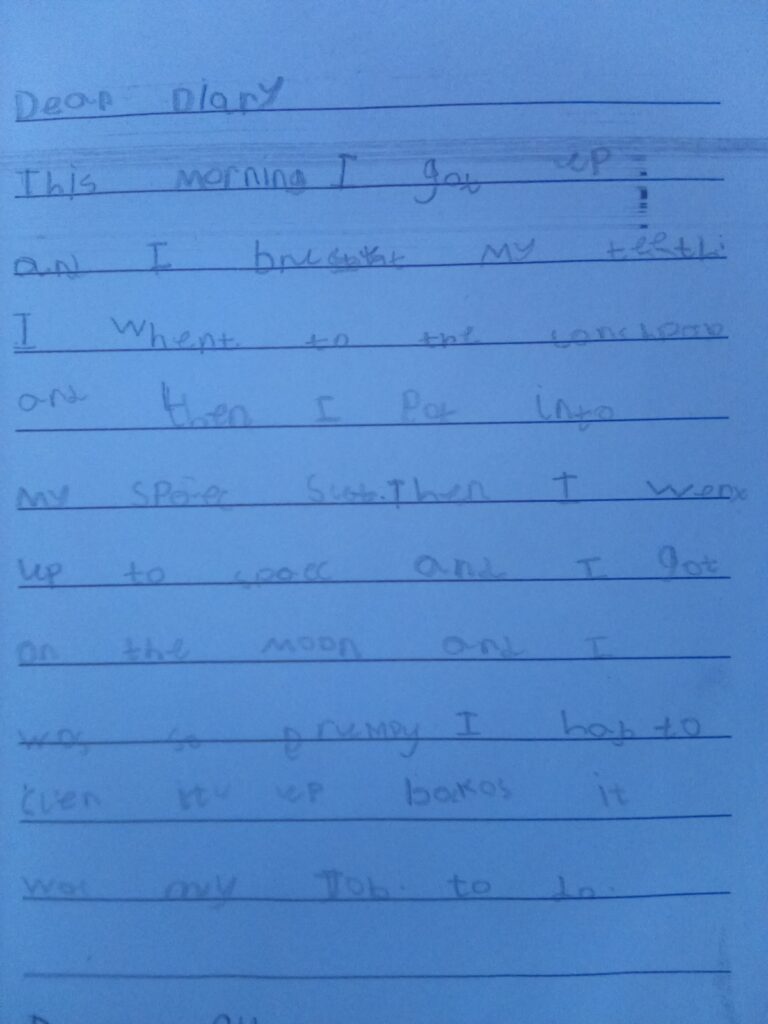 Dear Diary
This morning I got up
and I my teeth.
I whent to the
and then I Pot into
my Then I went
up to space and I got
on the moon and I
was so grumpy I had to
clen it up bakos it
was my Job. to do.